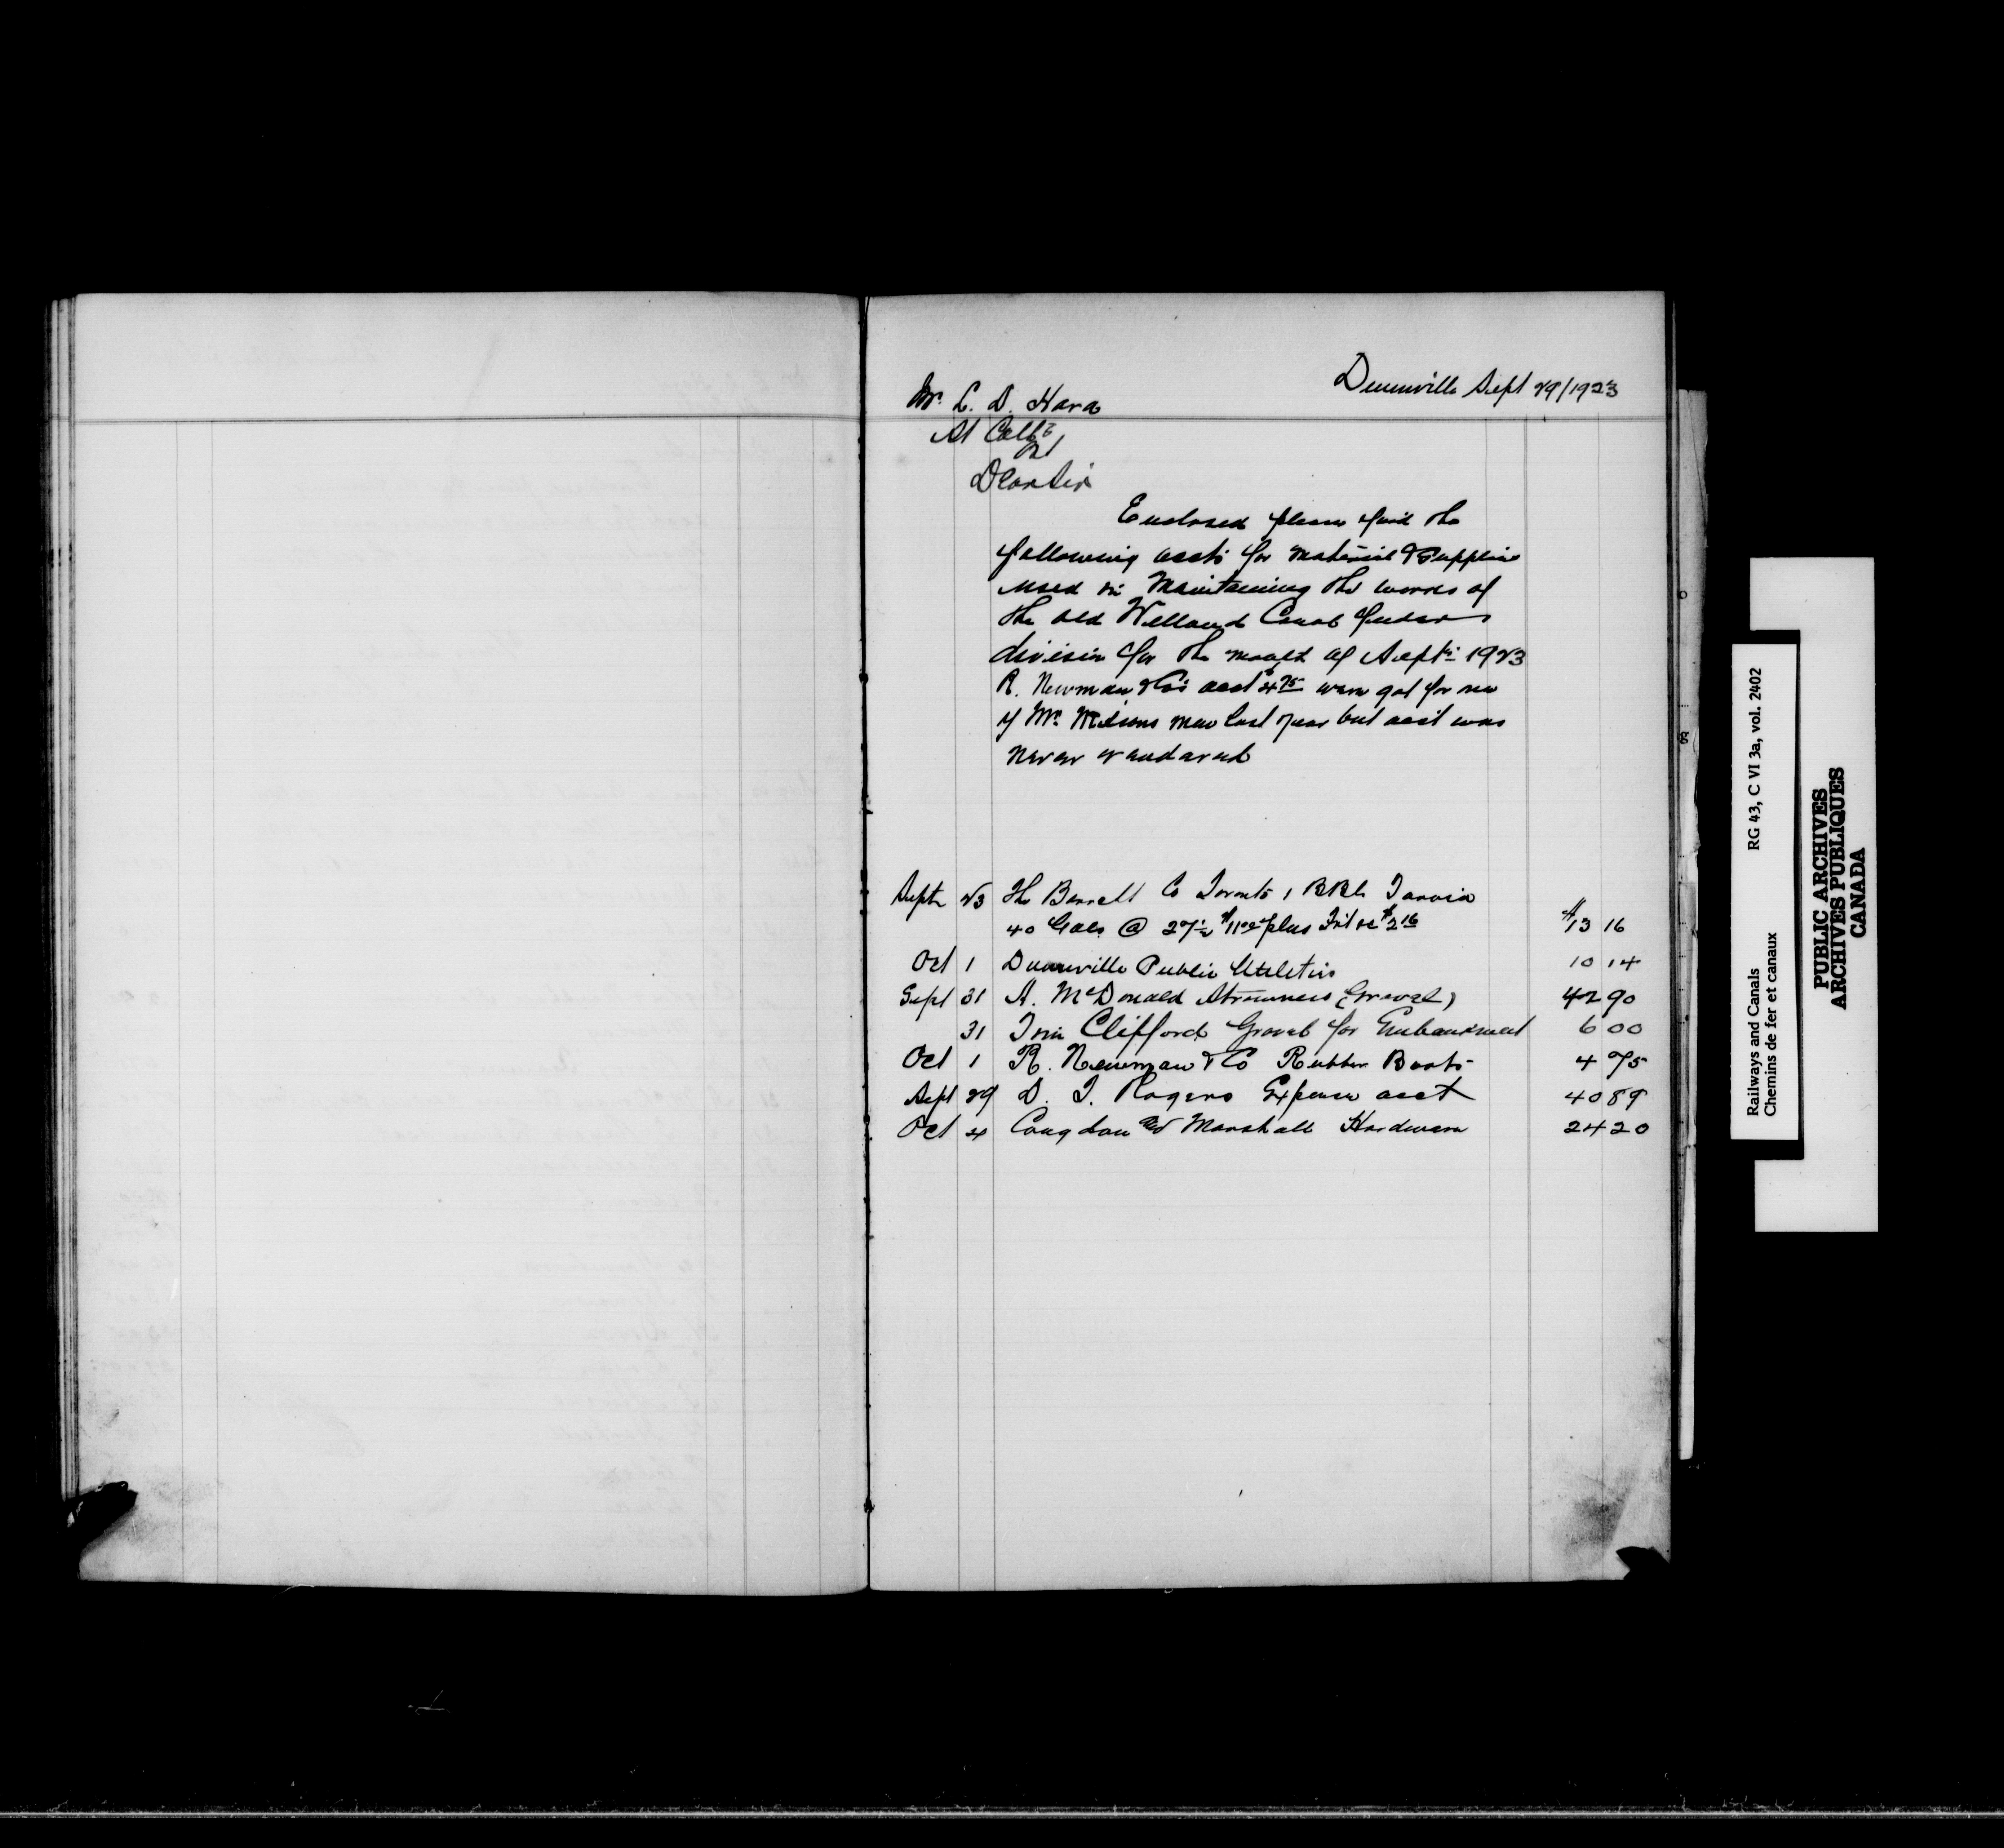 Dunnville Sept 29/1923
Mr. L. D. Hara
St Cath
Ont
Dear Sir
Enclosed please find the
following accts for material & supplies
used in maintaining the works of
the old Welland Canal feeder
division for the month of Sept 1923
R. Newman & Co's acct $4 75 were got for one
of Mr. men last year but acct was
never rendered
Sept 23 The Barrett Co Toronto 1 BBL Tarvia
40 Gals @ 27½ $11 00 plus Frt &c $2 16 $13 16
Oct 1 Dunnville Public Utilities 10 14
Sept 31 A. McDonald Stromness (Gravel) 42 90
31 Tom Clifford Gravel for Embankment 6 00
Oct 1 R. Newman & Co Rubber Boots 4 75
Sept 29 D. T. Rogers Expense acct 40 89
Oct 4 Congdon and Marshall Hardware 24 20
Railways and Canals RG 43, C VI 3a, vol. 2402
Chemins de fer et canaux
PUBLIC ARCHIVES
ARCHIVES PUBLIQUES
CANADA